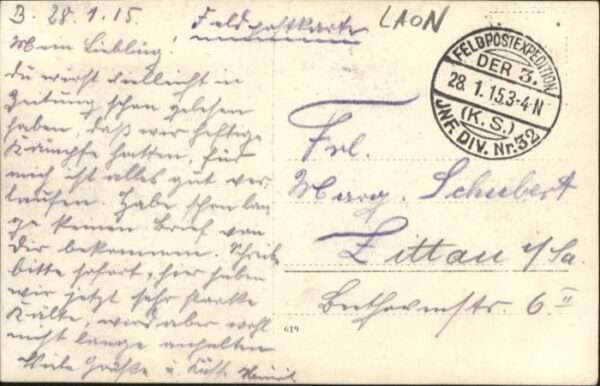 B. 28.1.15.
Feldpostkarte
LAON
Mein Liebling!
Du wirst vielleicht in
Zeitung schon gelesen
haben, daß wir heftige
Kämpfe hatten, für
mich ist alles gut ver-
laufen. Habe schon lan-
ge keinen Brief von
Dir bekommen. Schreibe
bitte sofort, hier haben
wir jetzt sehr starke
Kälte, wird aber wohl
nicht lange anhalten
Viele Grüße u. Küsse
FELDPOSTEXPEDITION
DER 3.
28. 1. 15. 3-4 N
(K. S.)
JNF. DIV. Nr. 32
Frl.
Marg. Schubert
Zittau i/Sa.
Bethovenstr. 6 II
619